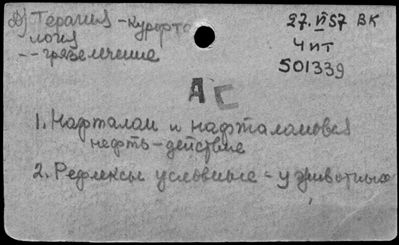 Терапия - курорто
логия
-- грязелечение
27.VI 57 ВК
Чит
501339
АС
1. Нафталан и нафталановая
нефть - действие
2. Рефлексы условные - у животных